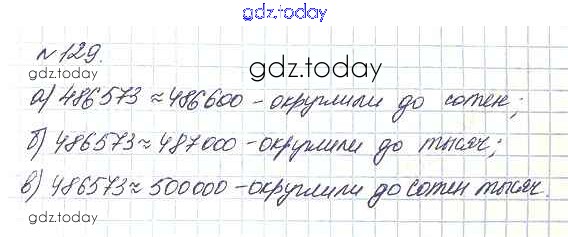 gdz.today
№129.
gdz.today
gdz.today
а) 486573 ≈ 486600 - округлили до сотен;
б) 486573 ≈ 487000 - округлили до тысяч;
в) 486573 ≈ 500000 - округлили до сотен тысяч.
gdz.today